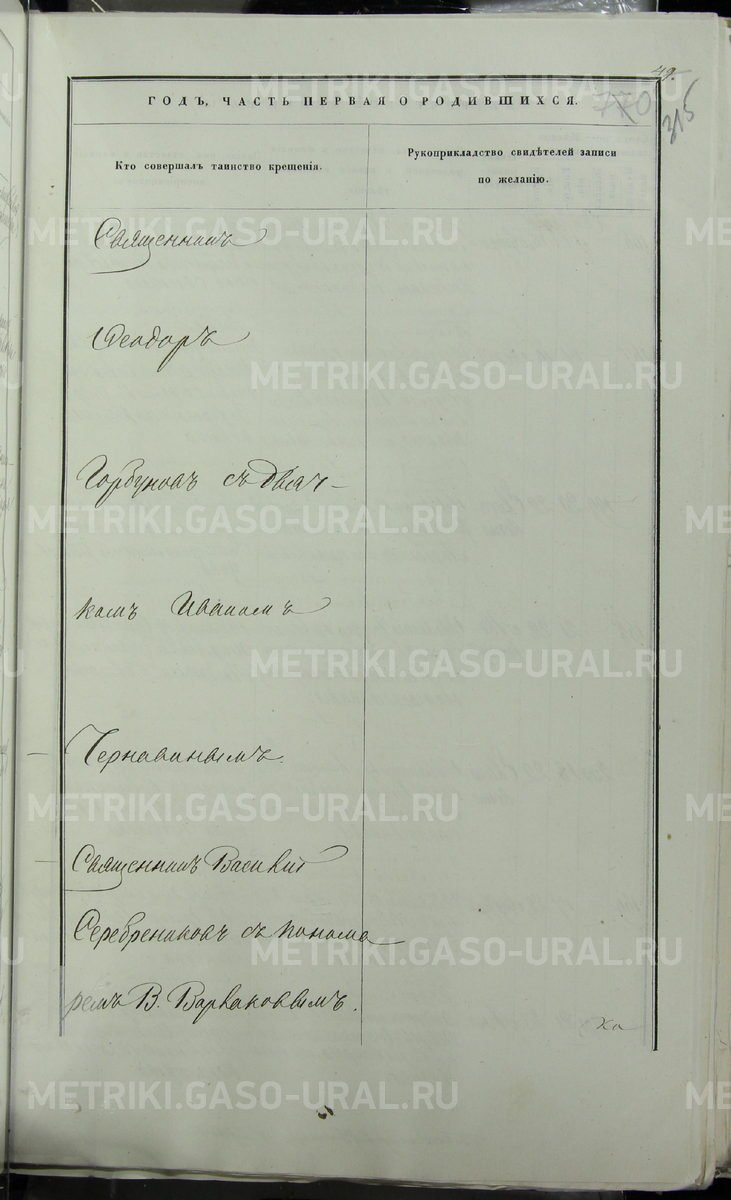 49.
ГОДЪ, ЧАСТЬ ПЕРВАЯ О РОДИВШИХСЯ.
770
315
Кто совершалъ таинство крещенія.
Рукоприкладство свидѣтелей записи
по желанію.
Священникъ
Ѳеодоръ
Горбуновъ съ дьяч-
комъ Иваномъ
Чернавинымъ.
Священникъ Василій
Серебрениковъ съ понома
ремъ В. Варваковымъ.
METRIKI.GASO-URAL.RU